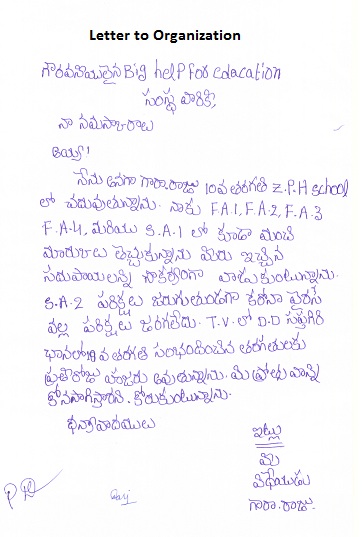 Letter to Organization
గౌరవనియులైన Big help for edacation
సంస్థ వారికి,
నా నమస్కారాలు
అయ్యా!
నేను అనగా గారా.రాజు 10వ తరగతి Z.P.H school
లో చదువుతున్నాను. నాకు F.A.1, F.A-2, F.A-3
F.A-4, మరియు S.A-1 లో కూడా మంచి
మార్కులు తెచ్చుకున్నాను మీరు ఇచ్చిన
సదుపాయలన్ని చాకర్యంగా వాడుకుంటున్నాను.
S.A-2 పరిక్షలు జరుగుతుండగా కరోనా వైరస్
వల్ల పరిక్షలు జరగలేదు. T.V.లో D.D సప్తగిరి
ఛానల్ 10వ తరగతి సంభందించిన తరగతులకు
ప్రతిరోజు హాజరు అవుతున్నాను. మి ప్రోత్సహాన్ని
కోనసాగిస్తారని. కోరుకుంటున్నాను.
ధన్యావాదములు
ఇట్లు
మి
విధేయుడు
గారా.రాజు.